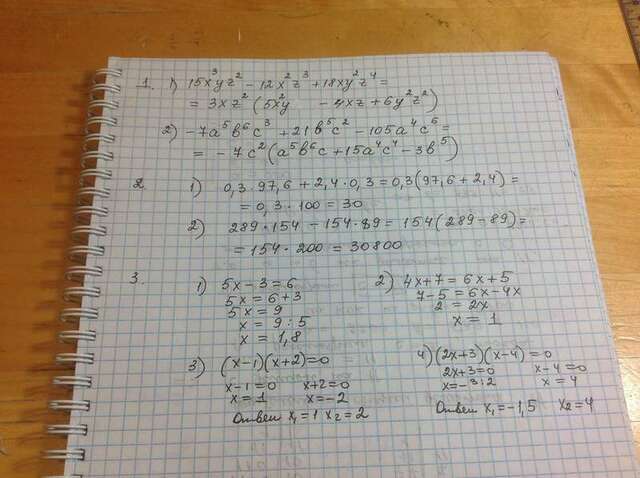 1. 1) 15x³yz² - 12x²z³ + 18xy²z⁴ =
= 3xz² (5x²y - 4xz + 6y²z²)
2) -7a⁵b⁶c³ + 21b⁵c² - 105a⁴c⁶ =
= -7c² (a⁵b⁶c + 15a⁴c⁴ - 3b⁵)
2 1) 0,3 · 97,6 + 2,4 · 0,3 = 0,3 (97,6 + 2,4) =
= 0,3 · 100 = 30
2) 289 · 154 - 154 · 89 = 154 (289 - 89) =
= 154 · 200 = 30800
3 1) 5x - 3 = 6
5x = 6 + 3
5x = 9
x = 9 : 5
x = 1,8
2) 4x + 7 = 6x + 5
7 - 5 = 6x - 4x
2 = 2x
x = 1
3) (x - 1)(x + 2) = 0
x - 1 = 0 x + 2 = 0
x = 1 x = -2
Ответ x₁ = 1 x₂ = 2
4) (2x + 3)(x - 4) = 0
2x + 3 = 0 x - 4 = 0
x = -3 : 2 x = 4
Ответ x₁ = -1,5 x₂ = 4